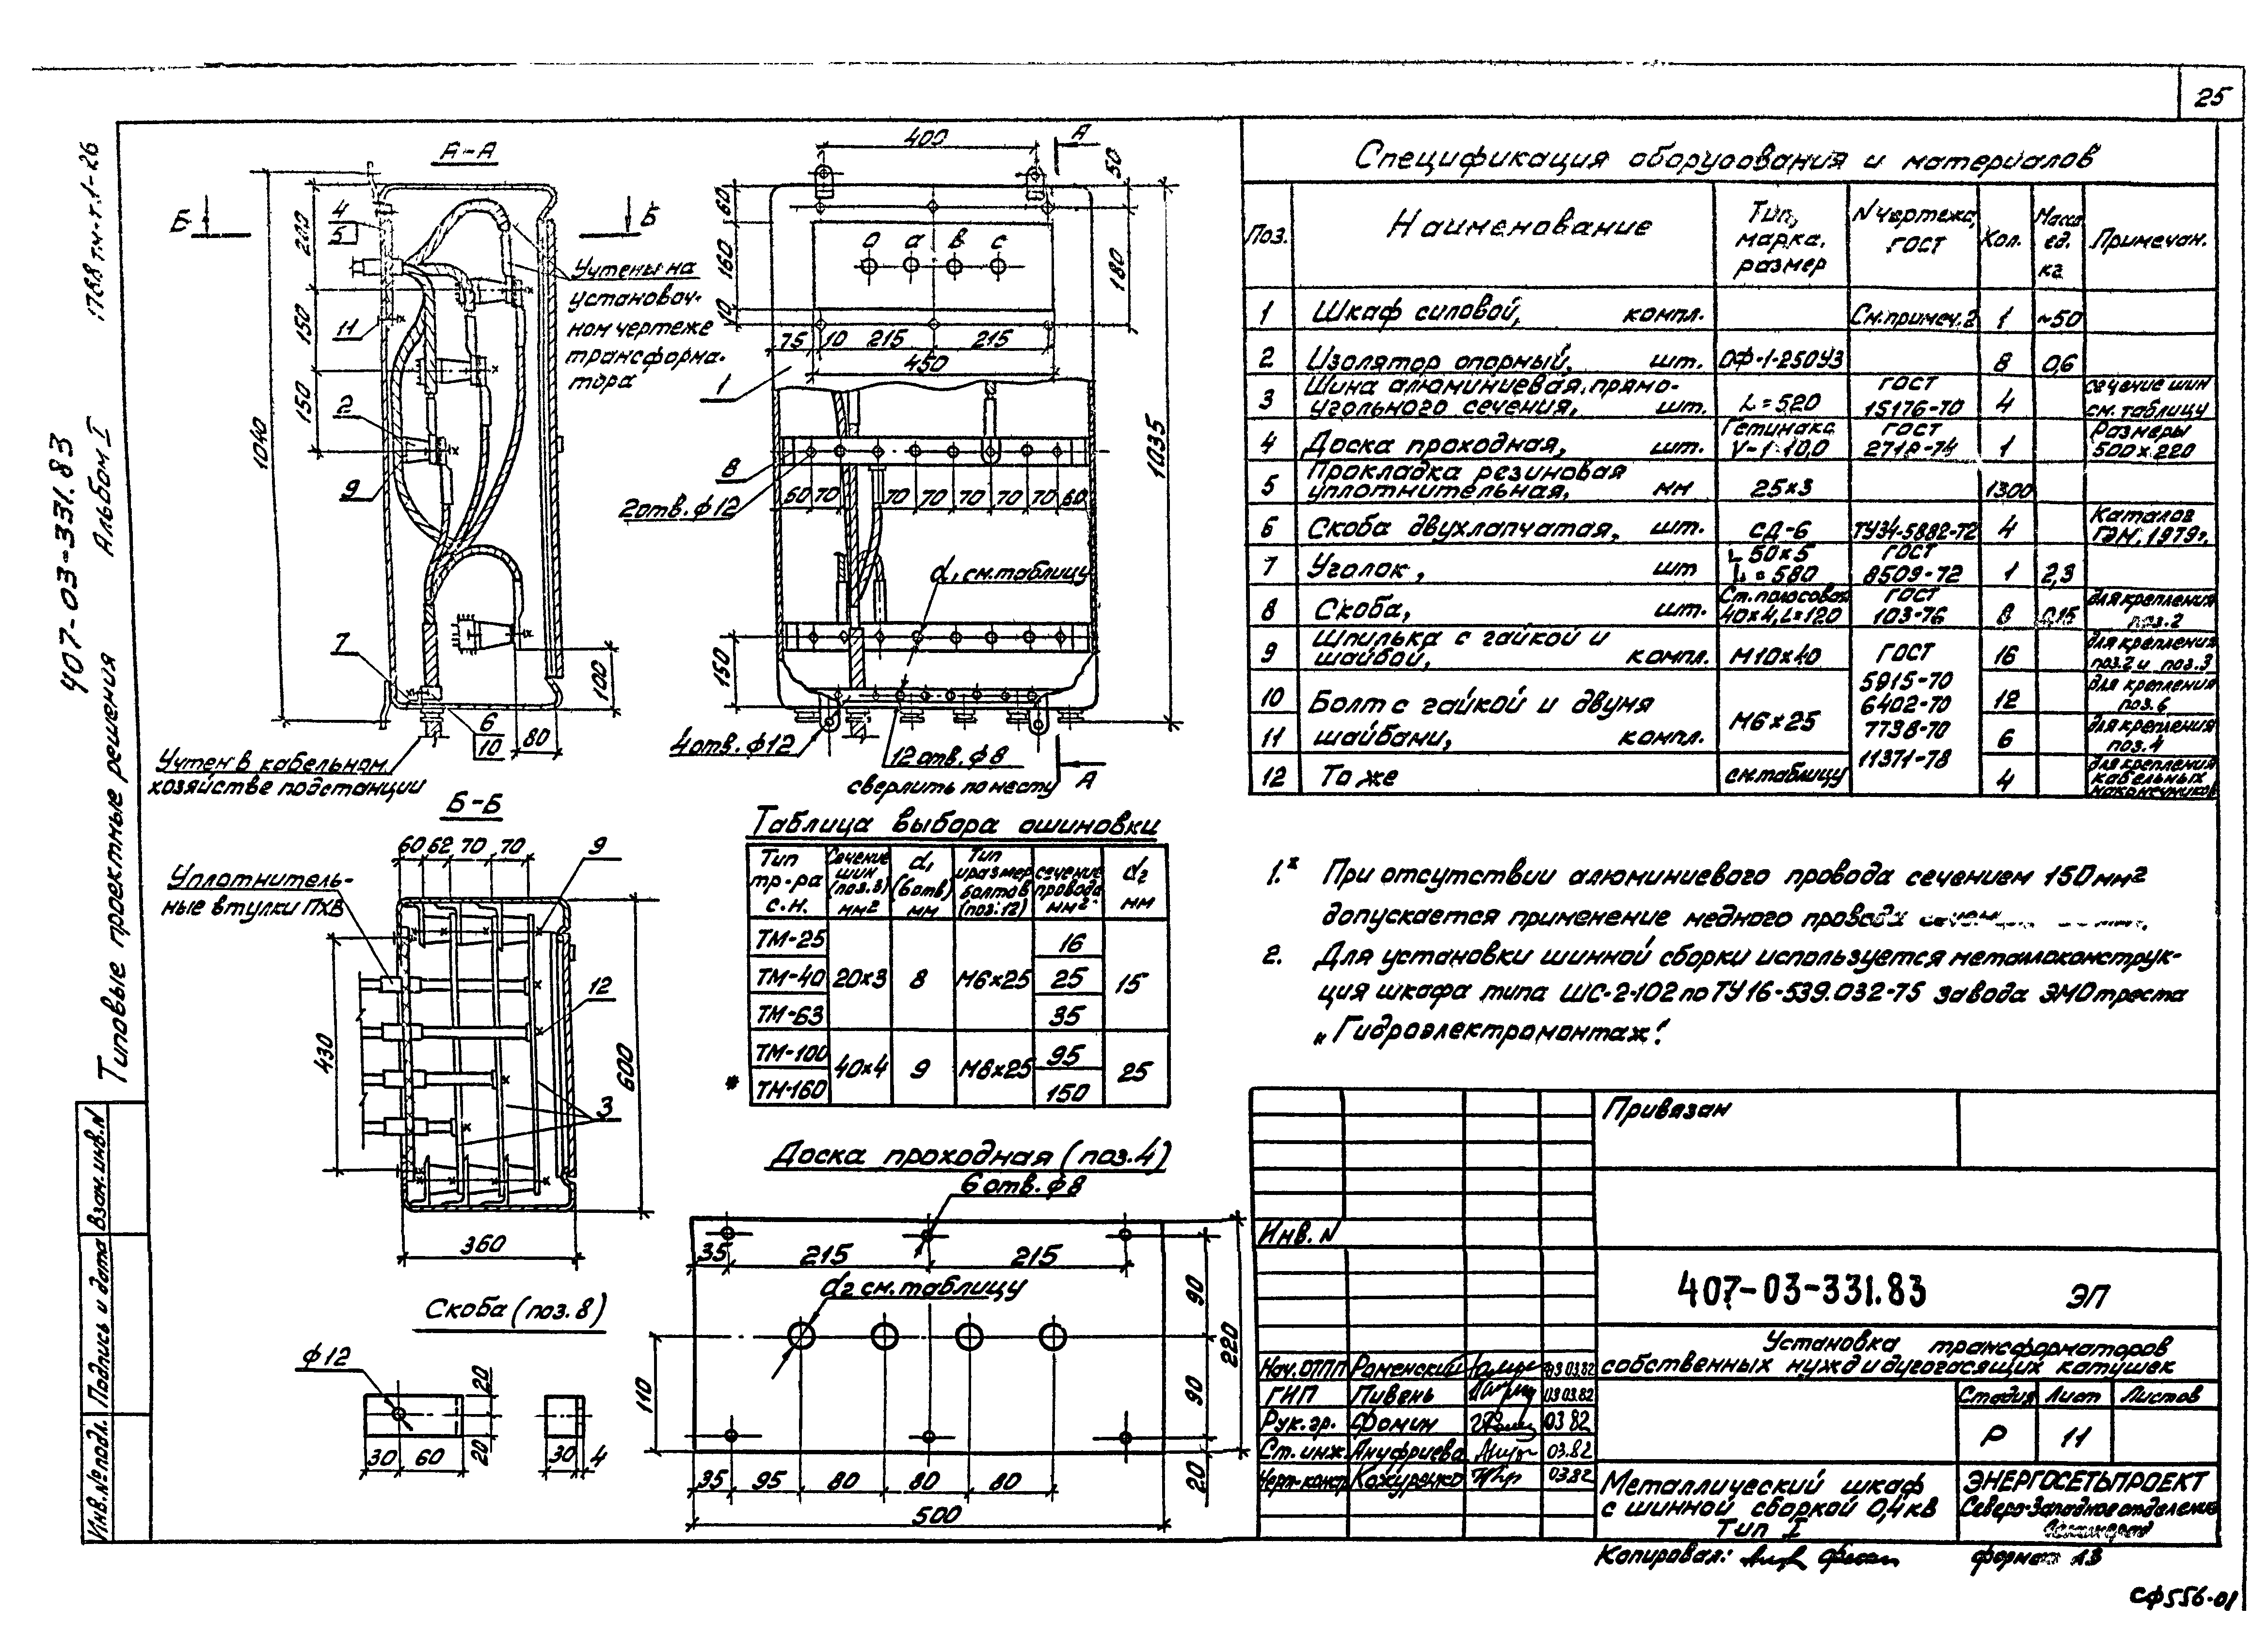 25
407-03-331.83
Типовые проектные решения Альбом I 1788тм-т.1-26
Взам.инв.N
Подпись и дата
Инв.№подл.
А-А
Б Б
4
5
11
2
9
7
6
10
200
150
150
1040
100
80
Учтены на
установоч-
ном чертеже
трансформа-
тора
Учтен в кабельном
хозяйстве подстанции
400
А
50
60
160
10
180
1035
о а в с
75 10 215 215
450
1
8
2отв.ф12
60 70 70 70 70 70 70 60
d₁ см.таблицу
150
4отв.ф12
12отв.ф8
сверлить по месту
А
Б-Б
60 62 70 70
9
12
3
Уплотнитель-
ные втулки ПХВ
430
600
360
Скоба (поз.8)
ф12
20
20
30 60
30 4
Таблица выбора ошиновки
Тип тр-ра с.н. Сечение шин (поз.3) мм² d₁ (6отв) мм Тип и размер болтов (поз.12) сечение провода мм² d₂ мм
ТМ-25 16
ТМ-40 20х3 8 М6х25 25 15
ТМ-63 35
ТМ-100 40х4 9 М8х25 95 25
* ТМ-160 150
Доска проходная (поз.4)
6отв.ф8
35 215 215
d₂ см.таблицу
90
90
220
20
110
35 95 80 80 80
500
Спецификация оборудования и материалов
Поз. Наименование Тип, марка, размер N чертежа, ГОСТ Кол. Масса ед. кг Примечан.
1 Шкаф силовой, компл. См.примеч.2 1 ~50
2 Изолятор опорный, шт. ОФ-1-250У3 8 0,6
3 Шина алюминиевая прямо- угольного сечения, шт. L=520 ГОСТ 15176-70 4 сечение шин см.таблицу
4 Доска проходная, шт. Гетинакс V-1-10,0 ГОСТ 2718-74 1 Размеры 500х220
5 Прокладка резиновая уплотнительная, мм 25х3 1300
6 Скоба двухлапчатая, шт. СД-6 ТУ34-5882-72 4 Каталог ГЭМ, 1979г.
7 Уголок, шт L50х5 L=580 ГОСТ 8509-72 1 2,3
8 Скоба, шт. Ст.полосовая 40х4, L=120 ГОСТ 103-76 8 0,15 для крепления поз.2
9 Шпилька с гайкой и шайбой, компл. М10х40 ГОСТ 16 для крепления поз.2 и поз.3
5915-70
10 Болт с гайкой и двумя М6х25 6402-70 12 для крепления поз.6
11 шайбами, компл. 7738-70 6 для крепления поз.4
12 То же см.таблицу 11371-78 4 для крепления кабельных наконечников
1.* При отсутствии алюминиевого провода сечением 150мм²
допускается применение медного провода
2. Для установки шинной сборки используется металлоконструк-
ция шкафа типа ШС-2-102 по ТУ16-539.032-75 завода ЭМО треста
„Гидроэлектромонтаж".
Привязан
Инв.N
407-03-331.83 ЭП
Установка трансформаторов
собственных нужд и дугогасящих катушек
Нач.ОТПП Раменский 03.03.82
ГИП Пивень 03.03.82
Рук.гр. Фомин 03.82
Ст.инж Ануфриева 03.82
Черт-констр Кожуренко 03.82
Стадия Лист Листов
Р 11
Металлический шкаф
с шинной сборкой 0,4кВ
Тип I
ЭНЕРГОСЕТЬПРОЕКТ
Северо-Западное отделение
Копировал: формат 13
СФ556-01